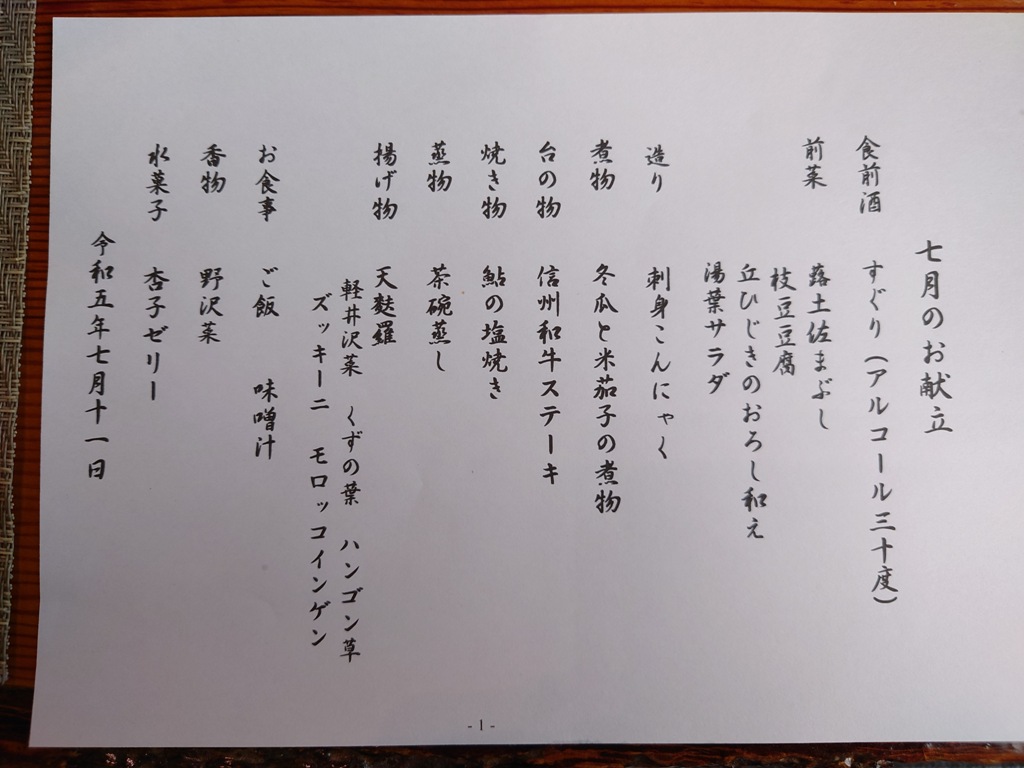 七月のお献立
食前酒　すぐり（アルコール三十度）
前菜　蕗土佐まぶし
枝豆豆腐
丘ひじきのおろし和え
湯葉サラダ
造り　刺身こんにゃく
煮物　冬瓜と米茄子の煮物
台の物　信州和牛ステーキ
焼き物　鮎の塩焼き
蒸物　茶碗蒸し
揚げ物　天麩羅
軽井沢菜　くずの葉　ハンゴン草
ズッキーニ　モロッコインゲン
お食事　ご飯　味噌汁
香物　野沢菜
水菓子　杏子ゼリー
令和五年七月十一日
- 1 -